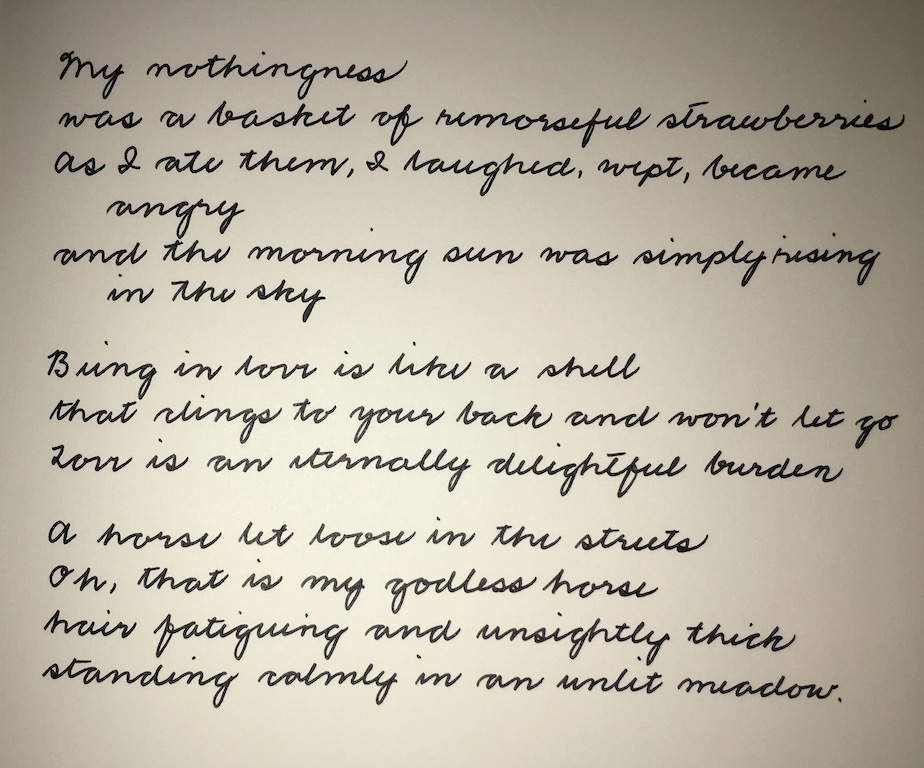 My nothingness
was a basket of remorseful strawberries
As I ate them, I laughed, wept, became
angry
and the morning sun was simply rising
in the sky
Being in love is like a shell
that clings to your back and won't let go
Love is an eternally delightful burden
A horse let loose in the streets
Oh, that is my godless horse
hair fatiguing and unsightly thick
standing calmly in an unlit meadow.